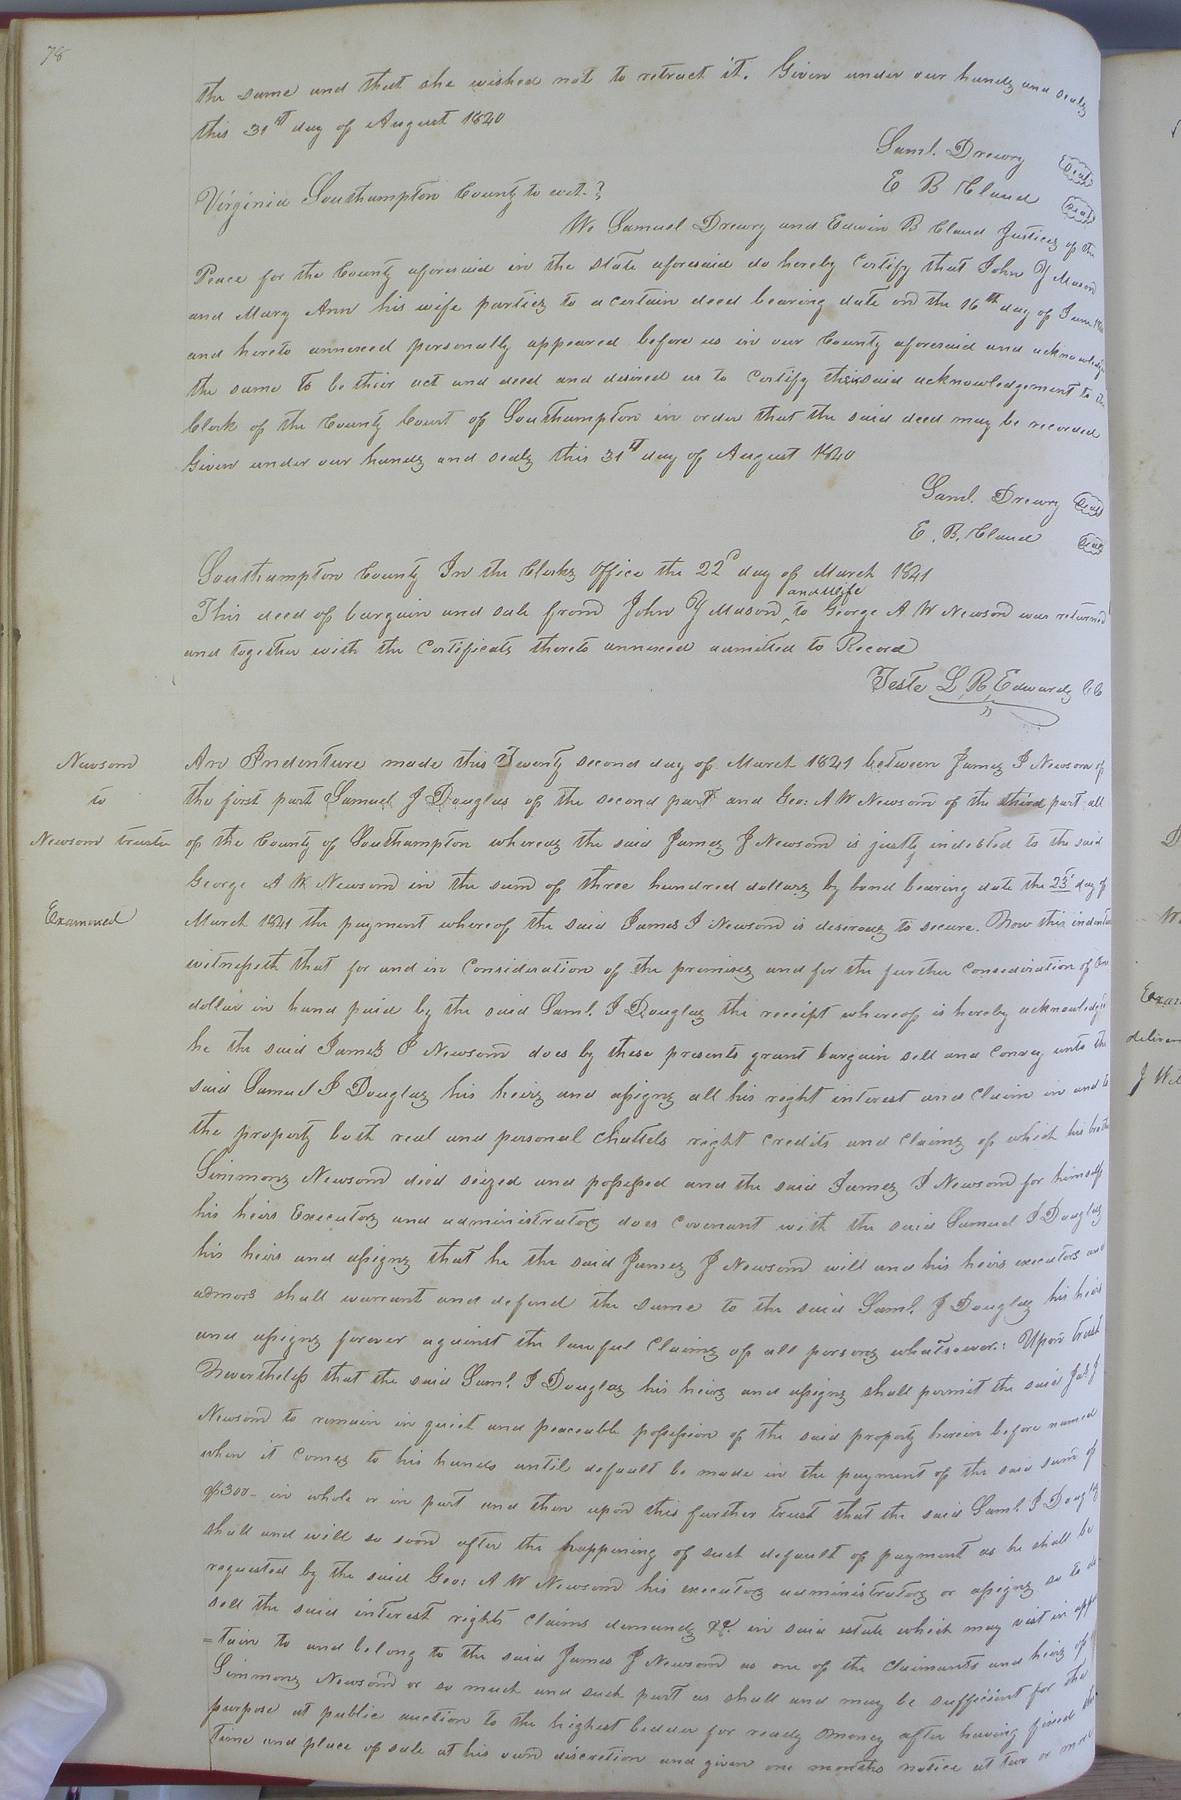 78
the same and that she wished not to retract it. Given under our hands and seals
this 31st day of August 1840
Saml. Drewry Seal
E B Claud Seal
Virginia Southampton County to wit.}
We Samuel Drewry and Edwin B Claud Justices of the
Peace for the County aforesaid in the state aforesaid do hereby Certify that John Y Mason
and Mary Ann his wife parties to a certain deed bearing date on the 16th day of June
and hereto annexed personally appeared before us in our County aforesaid and acknowledge
the same to be their act and deed and desired us to Certify the said acknowledgement to the
Clerk of the County Court of Southampton in order that the said deed may be recorded
Given under our hands and seals this 31st day of August 1840
Saml. Drewry Seal
E. B. Claud Seal
Southampton County In the Clerks Office the 22d day of March 1841
This deed of bargain and sale from John Y Mason and wife to George A W Newsom was returned
and together with the Certificates thereto annexed admitted to Record
Teste L R Edwards CC
Newsom
to
Newsom trustee
Examined
An Indenture made this Twenty second day of March 1841 between James J Newsom of
the first part Samuel J Douglas of the second part and Geo: A W Newsom of the third part all
of the County of Southampton whereas the said James J Newsom is justly indebted to the said
George A W Newsom in the sum of three hundred dollars by bond bearing date the day of
March 1841 the payment whereof the said James J Newsom is desirous to secure. Now this
witnesseth that for and in Consideration of the premises and for the further Consideration of One
dollar in hand paid by the said Saml. J Douglas the receipt whereof is hereby acknowledged
he the said James J Newsom does by these presents grant bargain sell and Convey unto the
said Samuel J Douglas his heirs and assigns all his right interest and Claim in and to
the property both real and personal Chattels right Credits and Claims of which his brother
Simmons Newsom died seized and possessed and the said James J Newsom for himself
his heirs Executors and administrators does Covenant with the said Samuel J Douglas
his heirs and assigns that he the said James J Newsom will and his heirs executors and
admors shall warrant and defend the same to the said Saml. J Douglas his heirs
and assigns forever against the lawful Claims of all persons whatsoever: Upon trust
Nevertheless that the said Saml. J Douglas his heirs and assigns shall permit the said Jas J
Newsom to remain in quiet and peaceable possession of the said property herein before named
when it Comes to his hands until default be made in the payment of the said sum of
$300- in whole or in part and then upon this further trust that the said Saml. J Douglas
shall and will so soon after the happening of such default of payment as he shall be
requested by the said Geo: A W Newsom his executors administrators or assigns so to do
sell the said interest rights Claims demands &c. in said estate which may vest in apper
=tain to and belong to the said James J Newsom as one of the Claimants and heirs of
Simmons Newsom or so much and such part as shall and may be sufficient for the
purpose at public auction to the highest bidder for ready money after having fixed the
time and place of sale at his own discretion and given one months notice at two or more